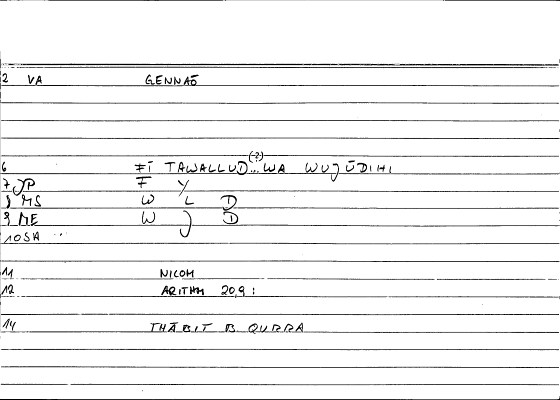 2 VA GENNAŌ
6 FĪ TAWALLUD(?)...WA WUJŪDIHI
7 JP F Y
8 MS W L D
9 ME W J D
10SA ...
11 NICOM
12 ARITHM 20,9:
14 THĀBIT B QURRA